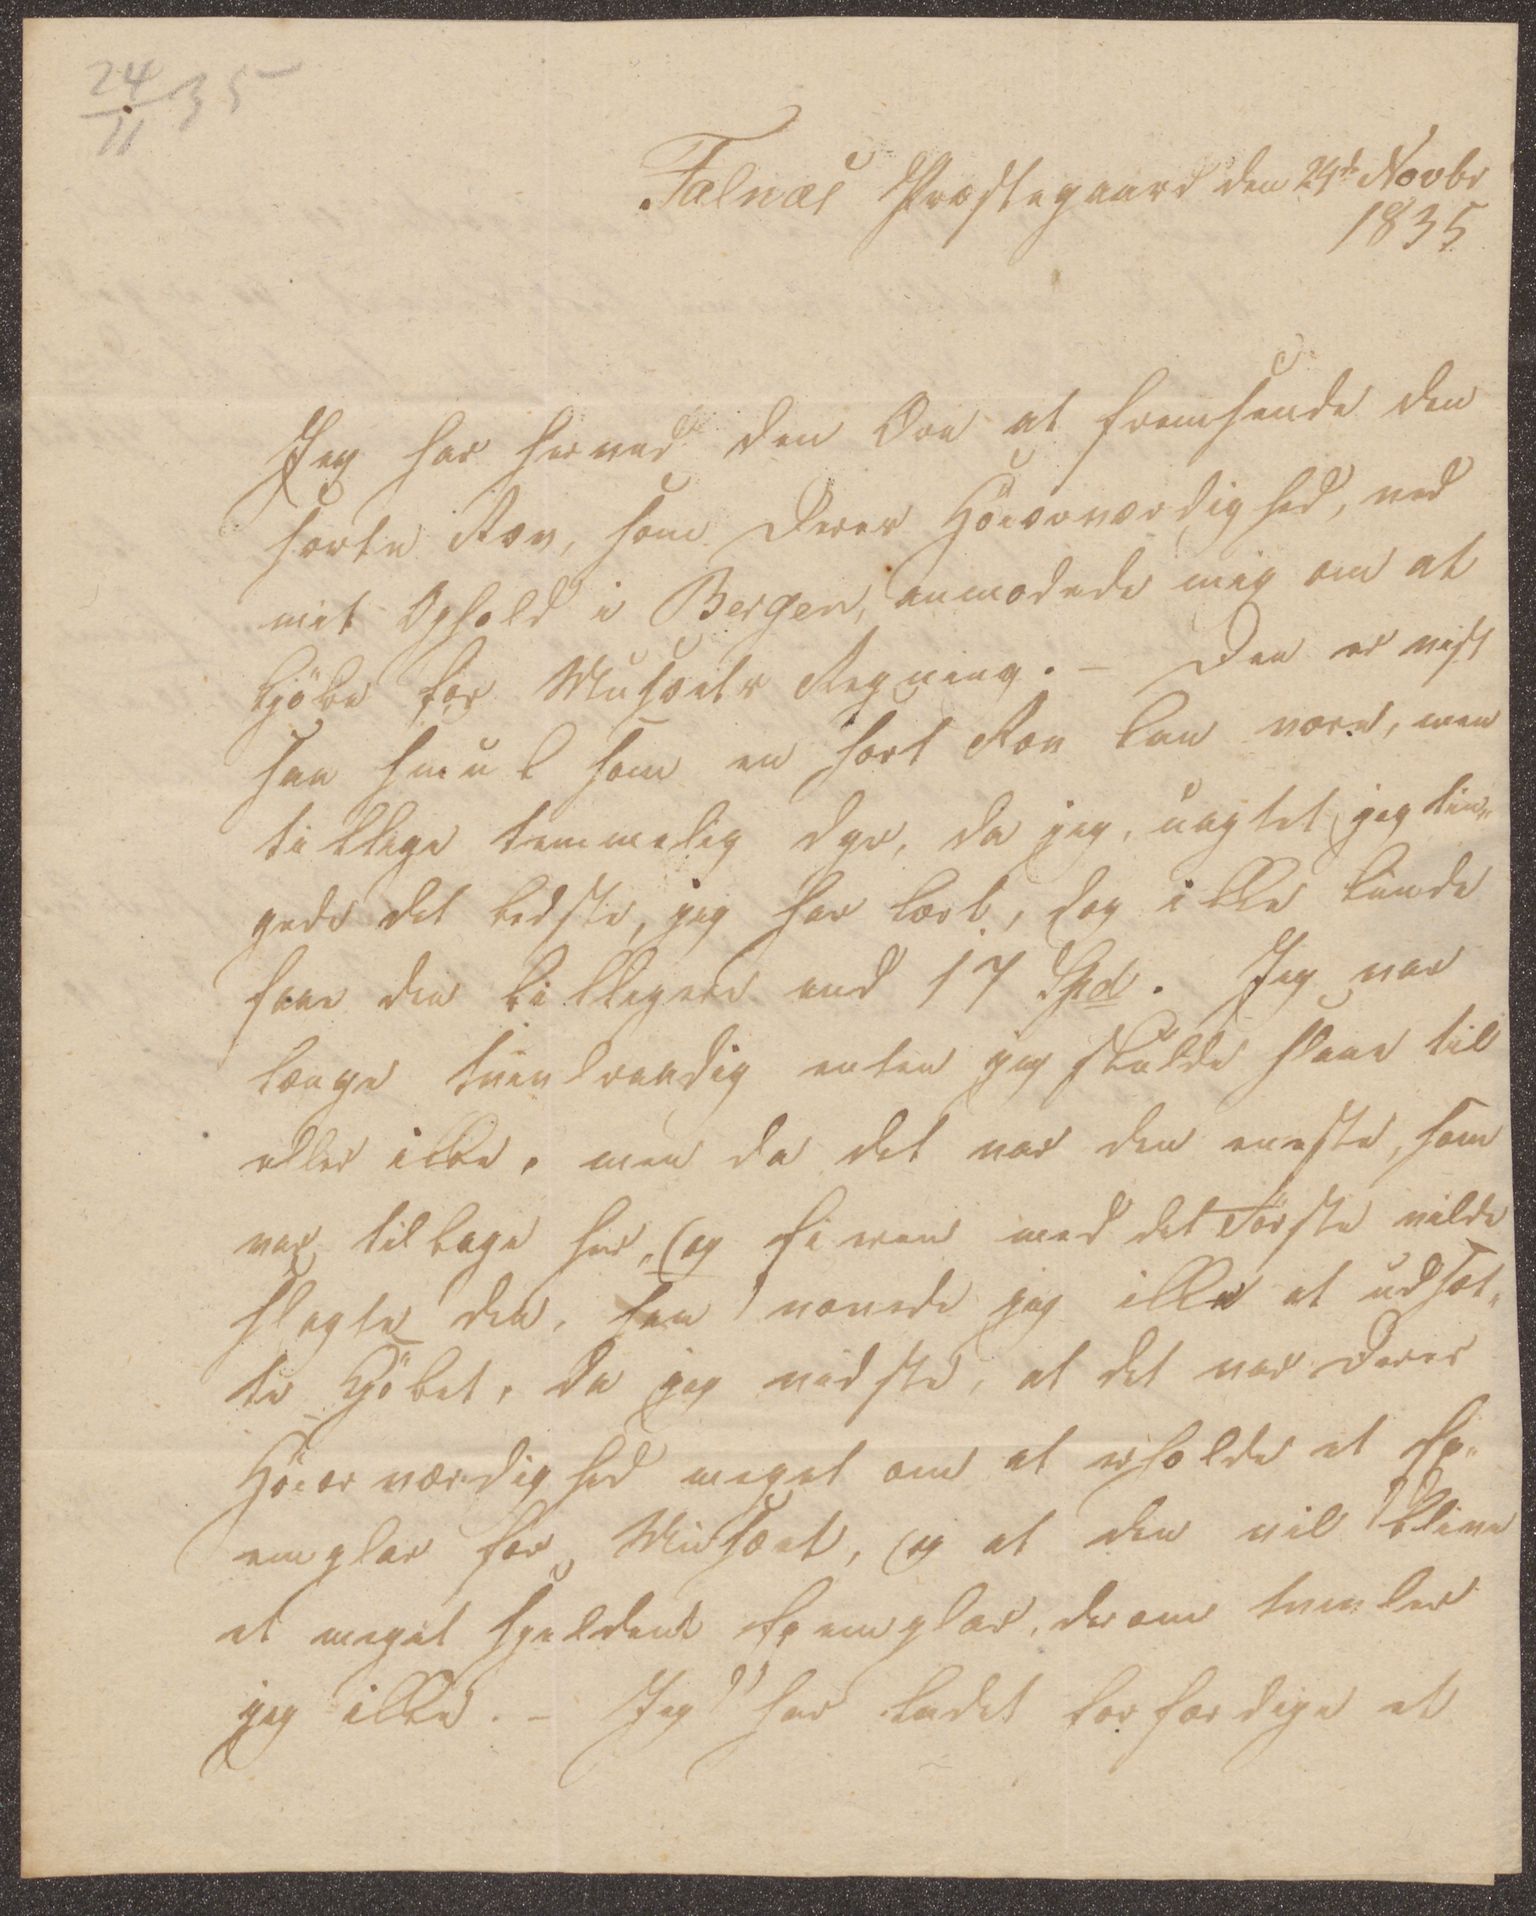 24/11 35
Falnæs Præstegaard den 24de Novbr
1835
Jeg har herved den Ære at fremsende den
sorte Ræv, som Deres Höiærværdighed, ved
mit Ophold i Bergen, anmodede mig om at
kjöbe for Musæets Regning. - Den er vist
saa smuk som en sort Ræv kan være, men
tillige temmelig dyr, da jeg, uagtet jeg tin„
gede det bedste, jeg har lært, dog ikke kunde
faae den billigere end 17 Spd. Jeg var
længe tvivlraadig enten jeg skulde slaae til
eller ikke, men da det var den eneste, som
var tilbage her, og Eieren med det Förste vilde
slagte den, saa vovede jeg ikke at udsæt„
te Kjöbet, da jeg vidste, at det var Deres
Höiærværdighed meget om at erholde et Ex„
emplar for Musæet, og at den vil blive
et meget sjeldent Exemplar, derom tvivler
jeg ikke. - Jeg har ladet forfærdige et